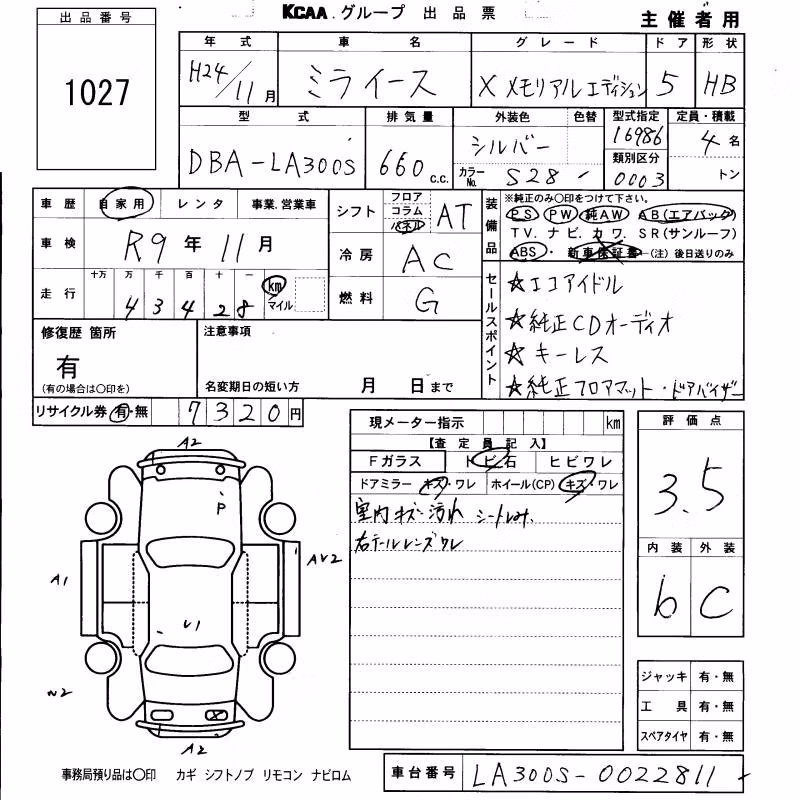 出品番号
1027
KCAA.グループ 出品票
主催者用
年式 車名 グレード ドア 形状
H24/11月 ミライース X メモリアルエディション 5 HB
型式 排気量 外装色 色替 型式指定 定員・積載
DBA-LA300S 660 c.c. シルバー 16986 4名
カラーNo. S28 類別区分 0003 トン
車歴 自家用 レンタ 事業.営業車
シフト フロア コラム パネル AT
車検 R9年11月
冷房 AC
走行 十万 万 千 百 十 一 km マイル
43428
燃料 G
装備品
※純正のみ○印をつけて下さい。
PS PW 純AW AB(エアバック)
TV.ナビ.カワ.SR(サンルーフ)
ABS・新車保証書 (注)後日送りのみ
セールスポイント
☆エコアイドル
☆純正CDオーディオ
☆キーレス
☆純正フロアマット・ドアバイザー
修復歴 箇所
有
(有の場合は○印を)
注意事項
名変期日の短い方 月 日まで
リサイクル券 有・無 7320円
現メーター指示 km
【査定員記入】
Fガラス トビ石 ヒビワレ
ドアミラー キズ・ワレ ホイール(CP) キズ・ワレ
室内キズ・汚れ
右テールレンズワレ
評価点
3.5
内装 外装
b C
A2
P
A1
AV2
V1
N2
A2
ジャッキ 有・無
工具 有・無
スペアタイヤ 有・無
事務局預り品は○印 カギ シフトノブ リモコン ナビロム
車台番号 LA300S-0022811